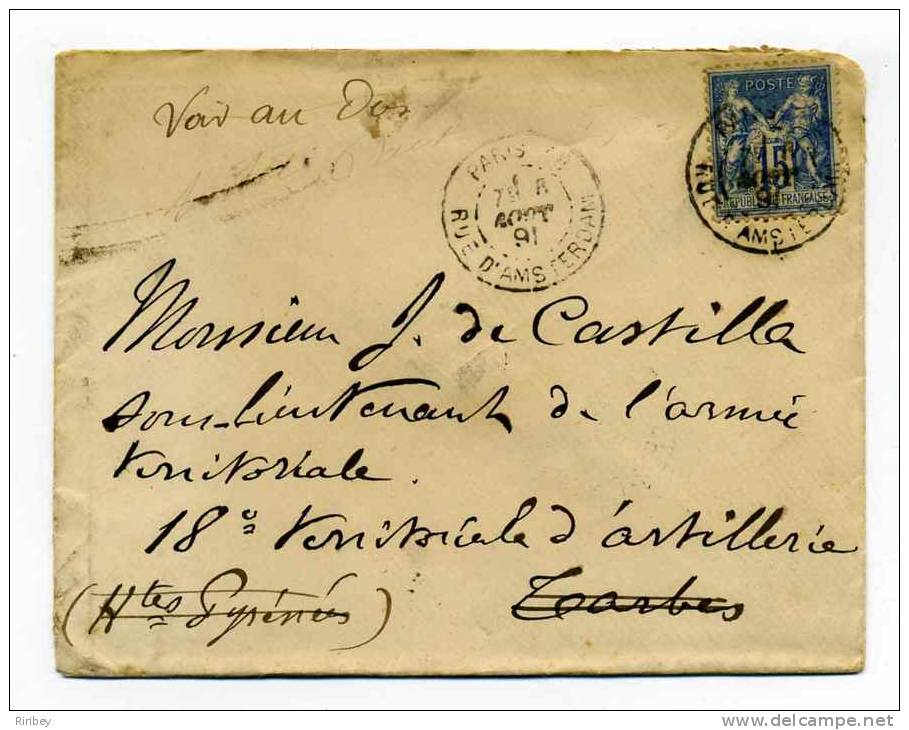 Voir au Dos
PARIS
AOUT
91
RUE D'AMSTERDAM
POSTES
15
REPUBLIQUE FRANÇAISE
91
AMSTE
Monsieur J. de Castilla
sous-lieutenant de l'armée
territoriale.
18e territoriale d'artillerie
(Htes Pyrénées) Tarbes
Riribey
www.delcampe.net